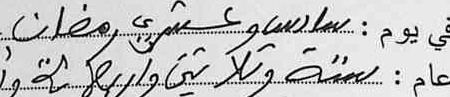 في يوم : سادس وعشري رمضان
عام : ستة وثلاثين واربعمائة وأ